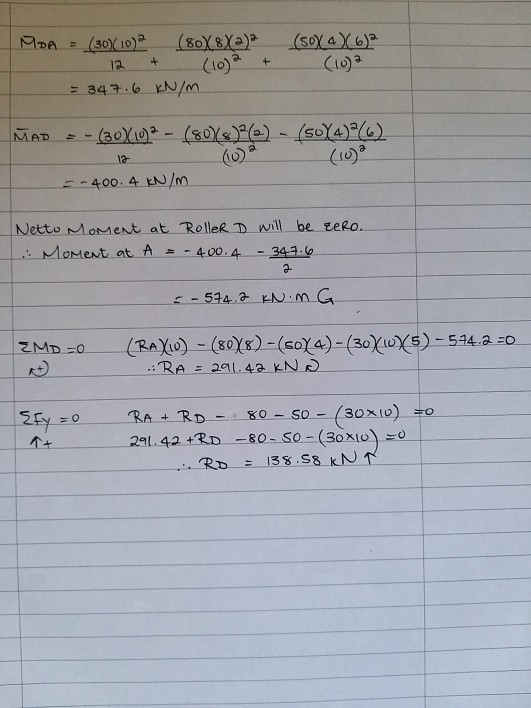 M̄DA = (30)(10)²/12 + (80)(8)(2)²/(10)² + (50)(4)(6)²/(10)²
= 347.6 kN/m
M̄AD = -(30)(10)²/12 - (80)(8)²(2)/(10)² - (50)(4)²(6)/(10)²
= -400.4 kN/m
Netto Moment at Roller D will be zero.
∴ Moment at A = -400.4 - 347.6/2
= -574.2 kN·m
ΣMD = 0 (RA)(10) - (80)(8) - (50)(4) - (30)(10)(5) - 574.2 = 0
∴ RA = 291.42 kN
ΣFy = 0 RA + RD - 80 - 50 - (30×10) = 0
↑+ 291.42 + RD - 80 - 50 - (30×10) = 0
∴ RD = 138.58 kN ↑